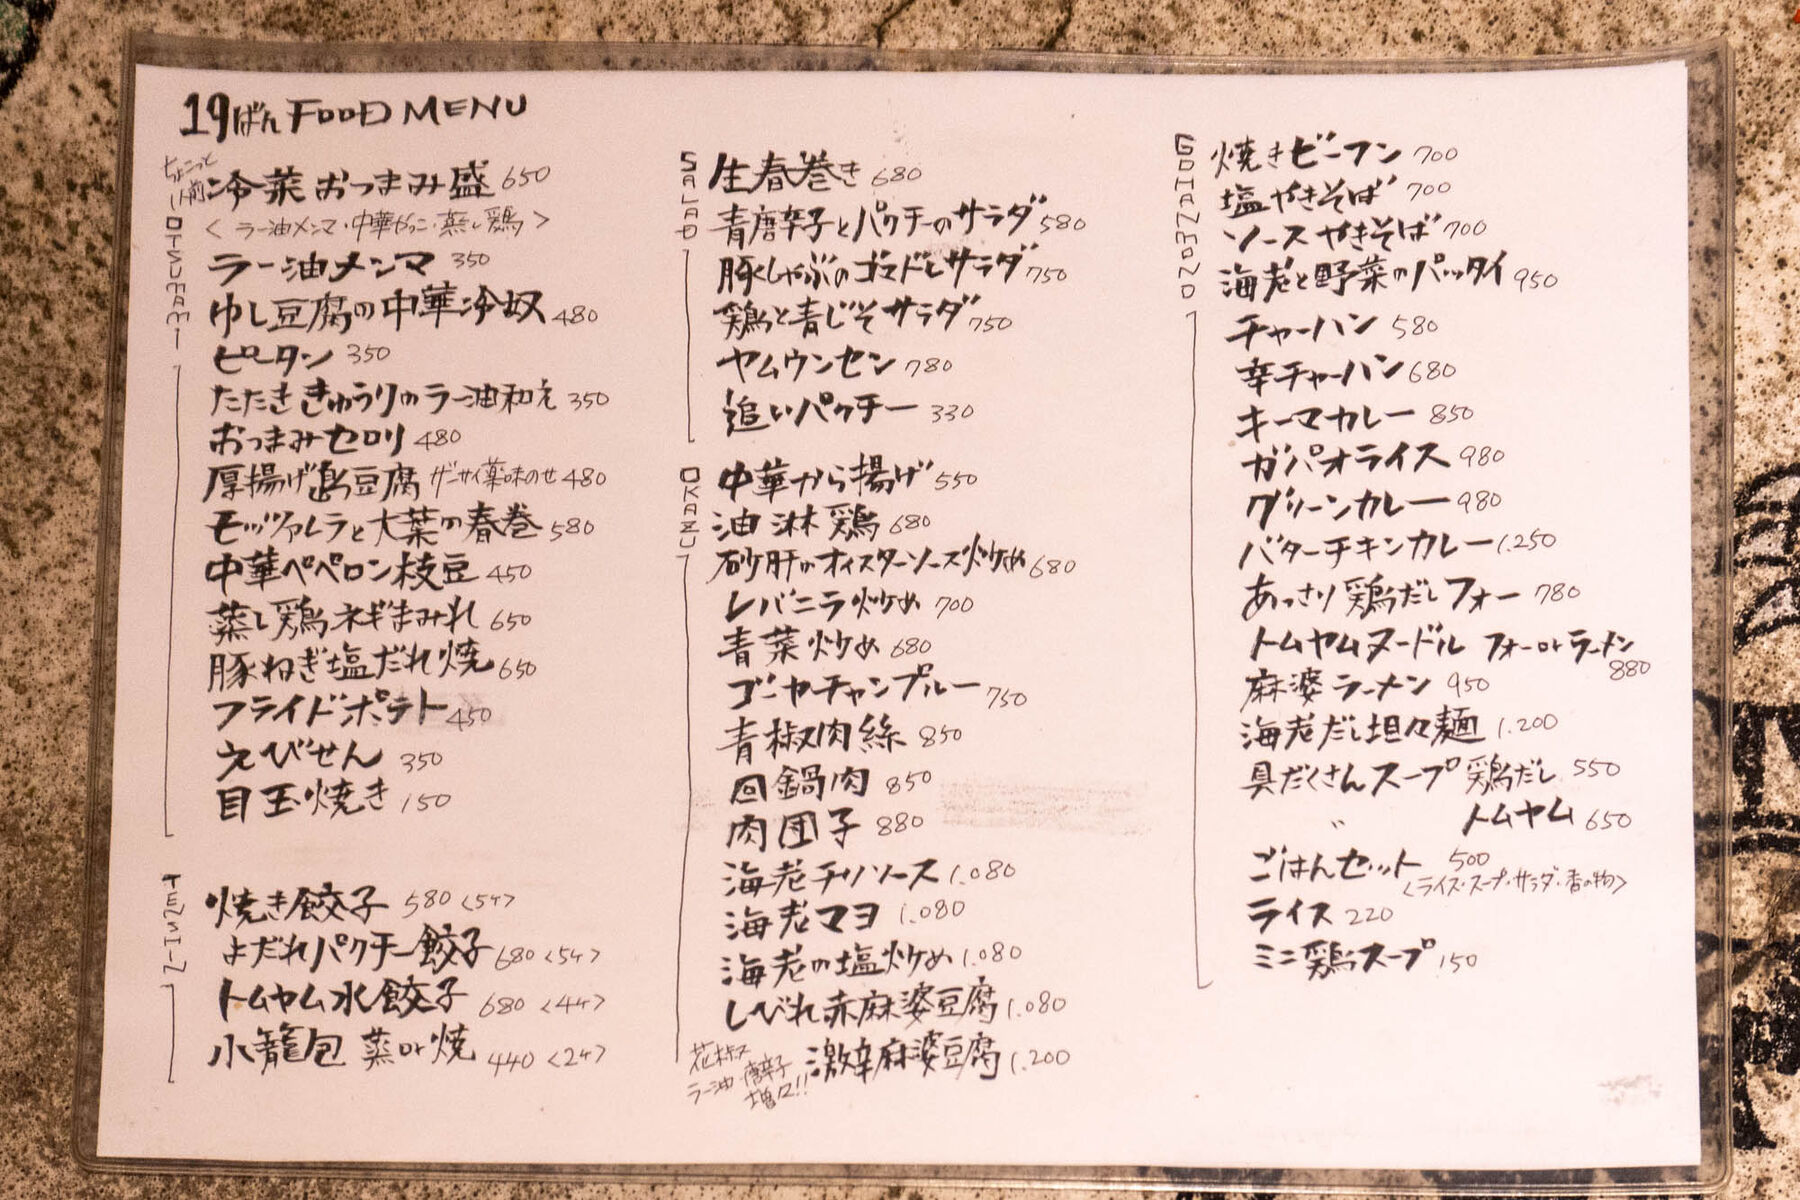 19ばん FOOD MENU
ちょこっと
1人前
OTSUMAMI
冷菜 おつまみ盛 650
＜ラー油メンマ・中華やっこ・蒸し鶏＞
ラー油メンマ 350
ゆし豆腐の中華冷奴 480
ピータン 350
たたききゅうりのラー油和え 350
おつまみセロリ 480
厚揚げ島豆腐 ザーサイ薬味のせ 480
モッツァレラと大葉の春巻 580
中華ペペロン枝豆 450
蒸し鶏ネギまみれ 650
豚ねぎ塩だれ焼 650
フライドポテト 450
えびせん 350
目玉焼き 150
TENSHIN
焼き餃子 580 <5ケ>
よだれパクチー餃子 680 <5ケ>
トムヤム水餃子 680 <4ケ>
小籠包 蒸or焼 440 <2ケ>
SALAD
生春巻き 680
青唐辛子とパクチーのサラダ 580
豚しゃぶのゴマドレサラダ 750
鶏と青じそサラダ 750
ヤムウンセン 780
追いパクチー 330
OKAZU
中華から揚げ 550
油淋鶏 680
砂肝のオイスターソース炒め 680
レバニラ炒め 700
青菜炒め 680
ゴーヤーチャンプルー 750
青椒肉絲 850
回鍋肉 850
肉団子 880
海老チリソース 1.080
海老マヨ 1.080
海老の塩炒め 1.080
しびれ赤麻婆豆腐 1.080
花椒
ラー油 唐辛子
増し!!
激辛麻婆豆腐 1.200
GOHANMONO
焼きビーフン 700
塩やきそば 700
ソースやきそば 700
海老と野菜のパッタイ 950
チャーハン 580
辛チャーハン 680
キーマカレー 850
ガパオライス 980
グリーンカレー 980
バターチキンカレー 1.250
あっさり鶏だしフォー 780
トムヤムヌードル フォーorラーメン 880
麻婆ラーメン 950
海老だし坦々麺 1.200
具だくさんスープ 鶏だし 550
〃 トムヤム 650
ごはんセット 500
<ライス・スープ・サラダ・香の物>
ライス 220
ミニ鶏スープ 150